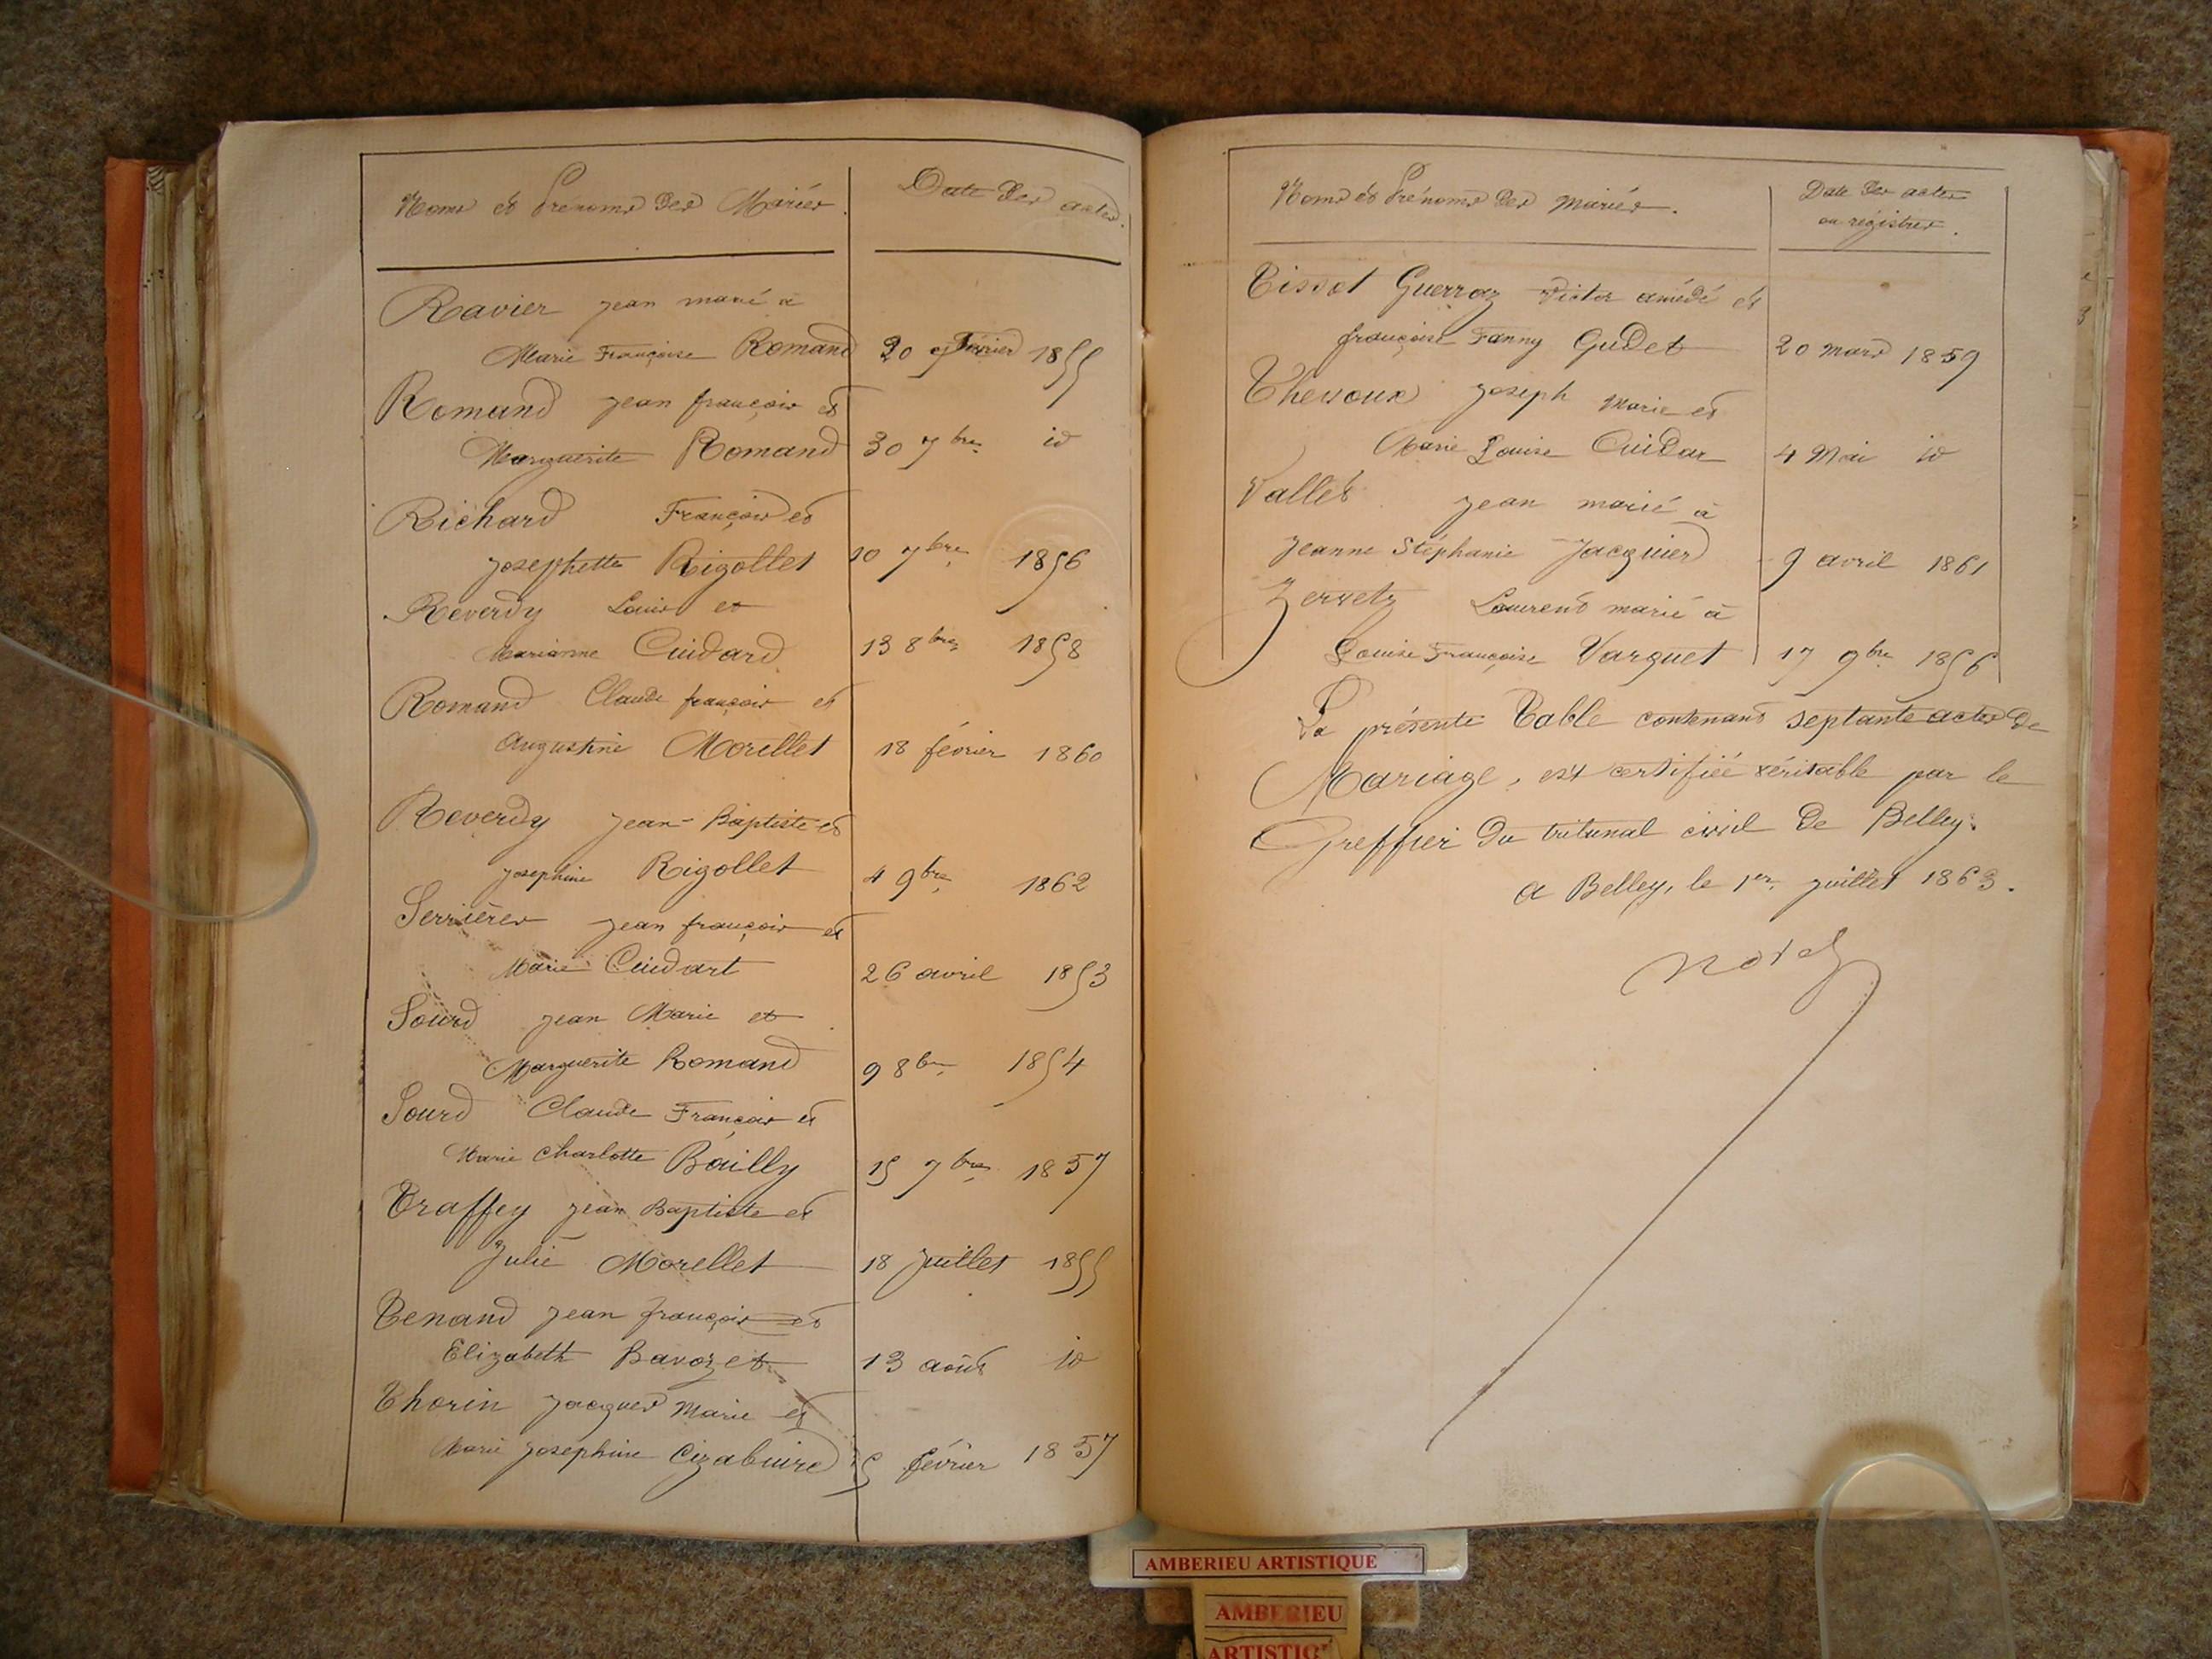 Noms et Prénoms des Mariés.
Date des actes.
Ravier jean marié à
Marie Françoise Romand 20 février 1855
Romand jean françois et
Marguerite Romand 30 7bre id
Richard François et
josephette Rigollet 10 7bre 1856
Reverdy Louis et
Marianne Cuidard 13 8bre 1858
Romand Claude françois et
Augustine Morellet 18 février 1860
Reverdy jean-Baptiste et
josephine Rigollet 4 9bre 1862
Serrières jean françois et
Marie Cuidart 26 avril 1853
Sourd jean Marie et
Marguerite Romand 9 8bre 1854
Sourd Claude François et
Marie Charlotte Bailly 15 7bre 1857
Traffey jean Baptiste et
Julie Morellet 18 juillet 1855
Tenand jean françois et
Elizabeth Bavozet 13 août id
Thorin jacques Marie et
Marie josephine Cizabuire 5 février 1857
Noms et Prénoms des mariés.
Date des actes
ou régistres.
Tissot Guerraz Victor amédé et
françoise Fanny Gudet 20 mars 1859
joseph Marie et
Marie Louise Cuidar 4 Mai id
Vallet jean marié à
Jeanne Stéphanie Jacquier 9 avril 1861
Laurent marié à
Louise Françoise Varguet 17 9bre 1856
La présente Table contenant septante actes de
Mariage, est certifiée véritable par le
Greffier du tribunal civil de Belley.
a Belley, le 1er juillet 1863.
AMBERIEU ARTISTIQUE
AMBERIEU